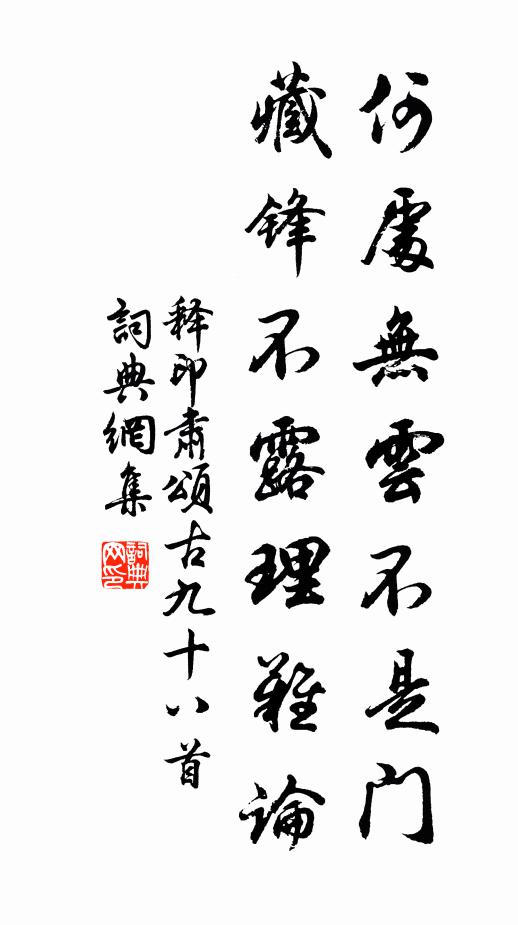 何處無雲不是门
藏锋不露理難论
释印肃頌古九十八首
詞典網集
詞典网印